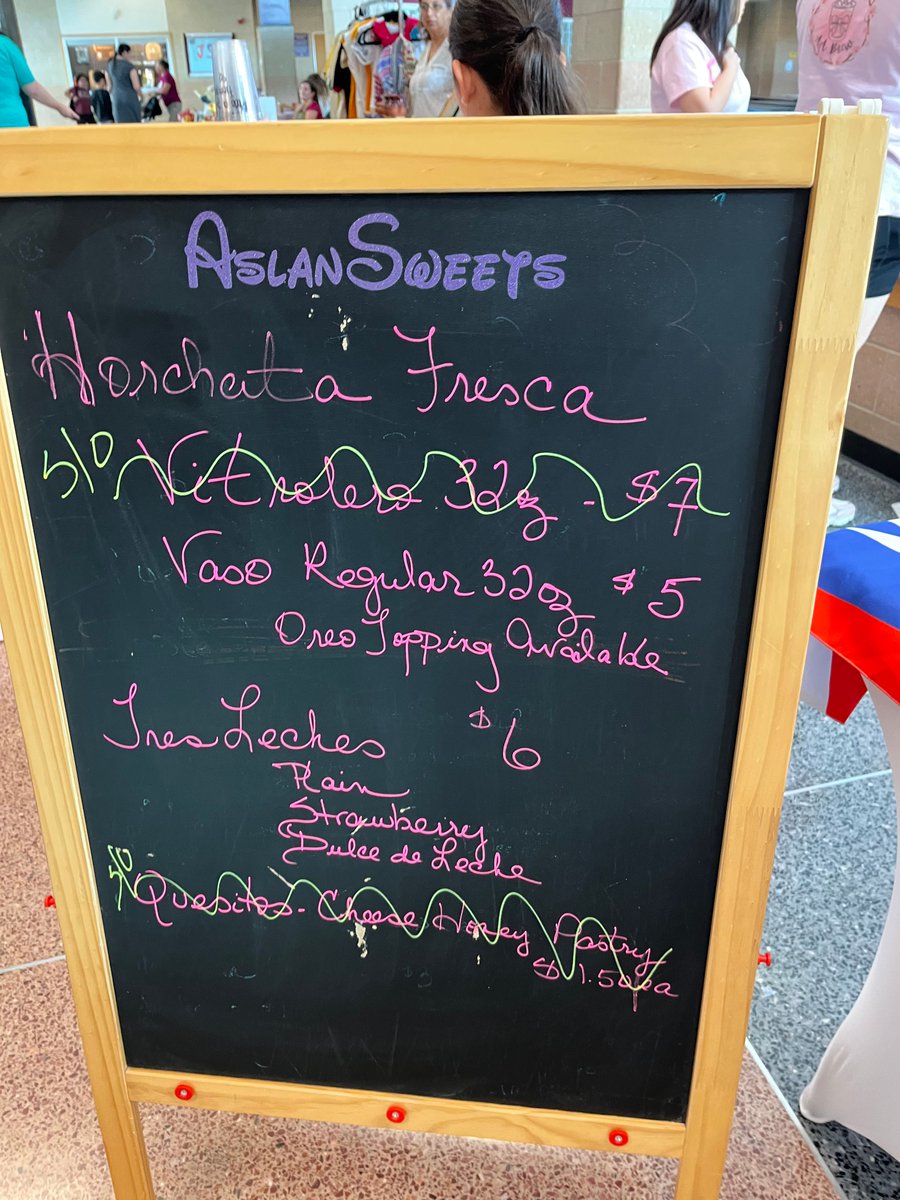 AslanSweets
Horchata Fresca
S/O Vitrolero 32oz - $7
Vaso Regular 32oz $5
Oreo Topping Available
Tres Leches $6
Plain
Strawberry
Dulce de Leche
S/O Quesitos - Cheese Honey Pastry
$1.50 ea